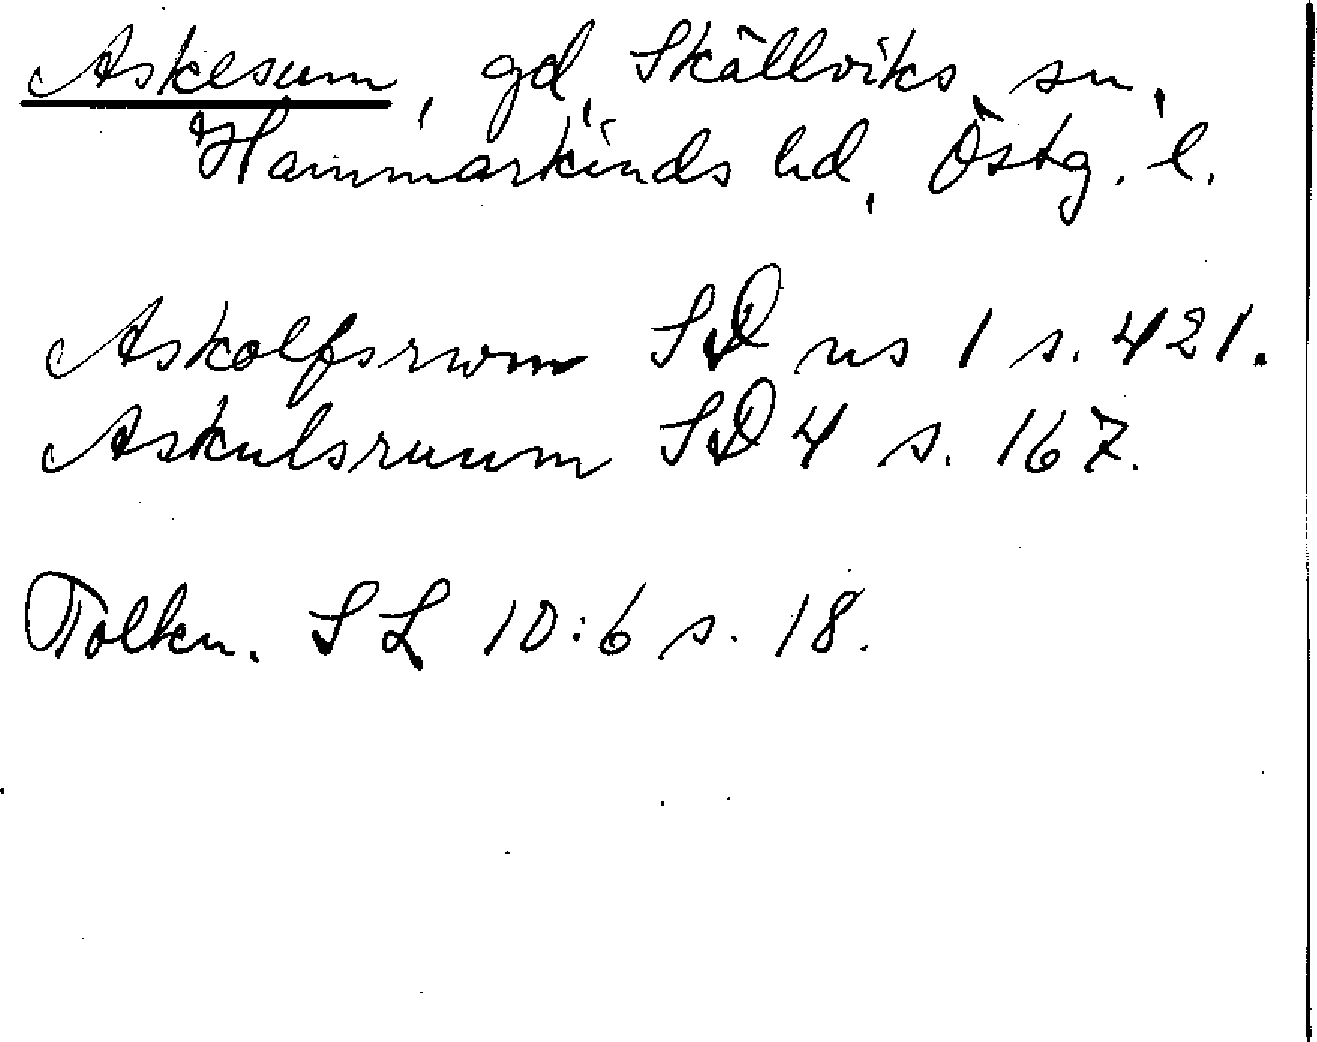 Askesum, gd, Skällviks sn,
Hammarkinds hd, Östg. l.
Askolfsrwm SD ns 1 s. 421.
Askulsruum SD 4 s. 167.
Tolkn. SL 10:6 s. 18.